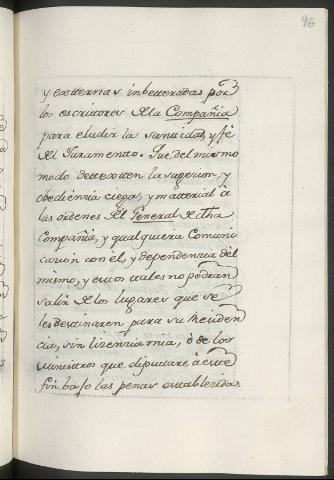 96
y externas inbetteradas por
los escritores de la Compañia
para eludir la santidad, y fé
del Juramento. Que del mismo
modo detesten la sugecion, y
obediencia ciega, y material à
las ordenes del General de dha
Compañia, y qualquiera Comuni
cacion con él, y dependencia dèl
mismo, y estos tales no podran
salir de los lugares que se
les destinaren para su Residen
cia, sin licencia mia, ò de los
ministros que diputare à este
fin bajo las penas establecidas